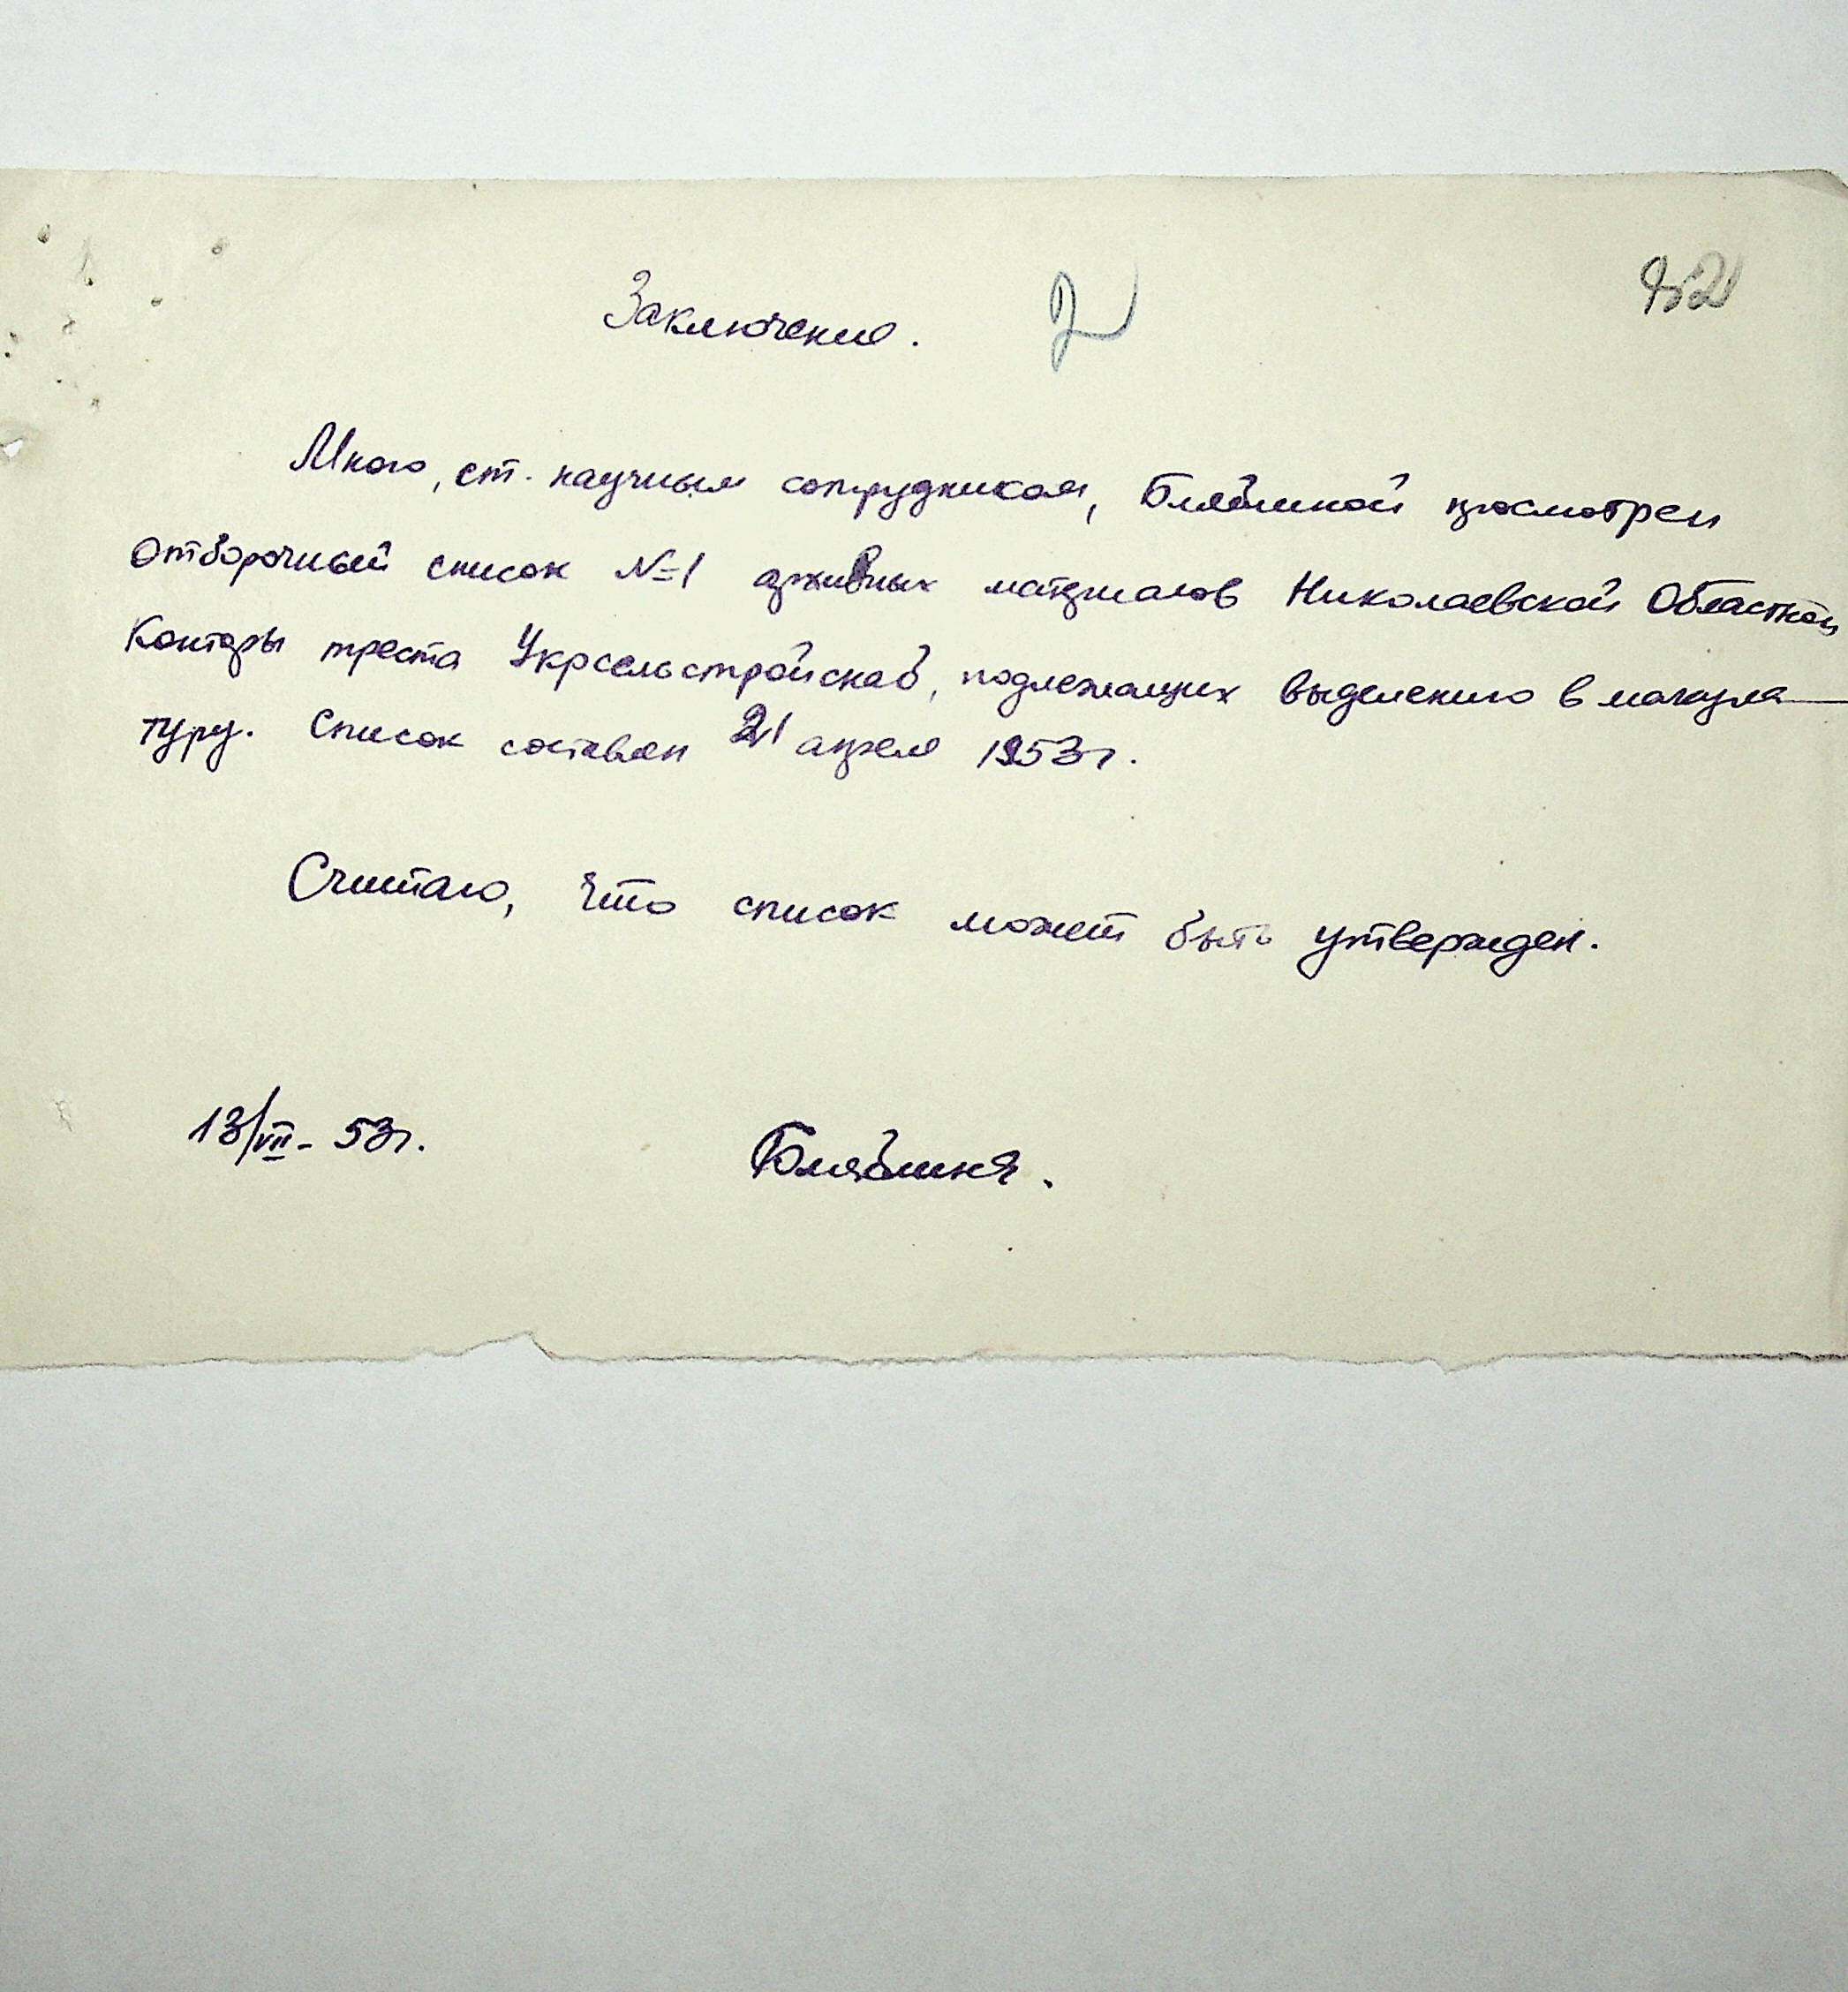 Заключение.
2
Мною, ст. научным сотрудником, Бляблиной просмотрен
отборочный список №1 архивных материалов Николаевской Областной
Конторы треста Укрсельстройснаб, подлежащих выделению в макула-
туру. Список составлен 21 апреля 1953 г.
Считаю, что список может быть утвержден.
13/VII - 53 г.